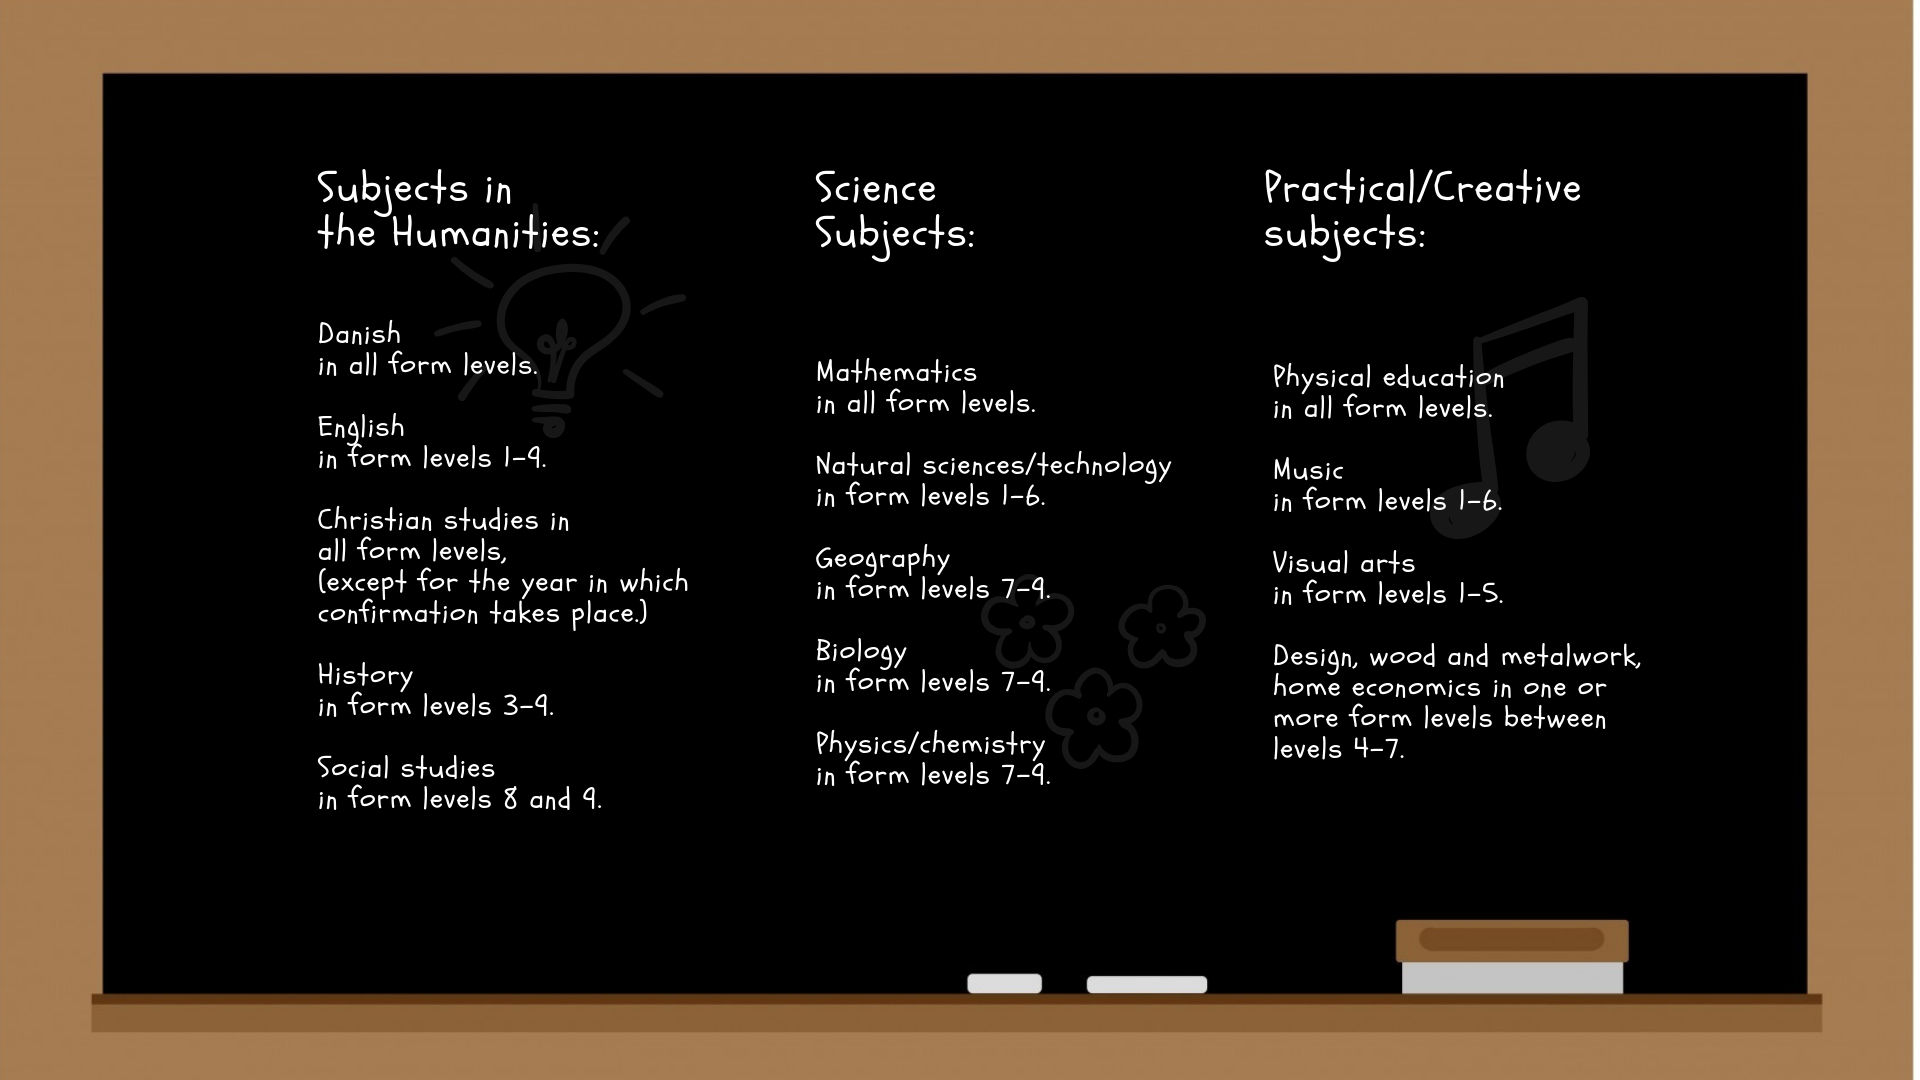 Subjects in
the Humanities:
Danish
in all form levels.
English
in form levels 1-9.
Christian studies in
all form levels,
(except for the year in which
confirmation takes place.)
History
in form levels 3-9.
Social studies
in form levels 8 and 9.
Science
Subjects:
Mathematics
in all form levels.
Natural sciences/technology
in form levels 1-6.
Geography
in form levels 7-9.
Biology
in form levels 7-9.
Physics/chemistry
in form levels 7-9.
Practical/Creative
subjects:
Physical education
in all form levels.
Music
in form levels 1-6.
Visual arts
in form levels 1-5.
Design, wood and metalwork,
home economics in one or
more form levels between
levels 4-7.